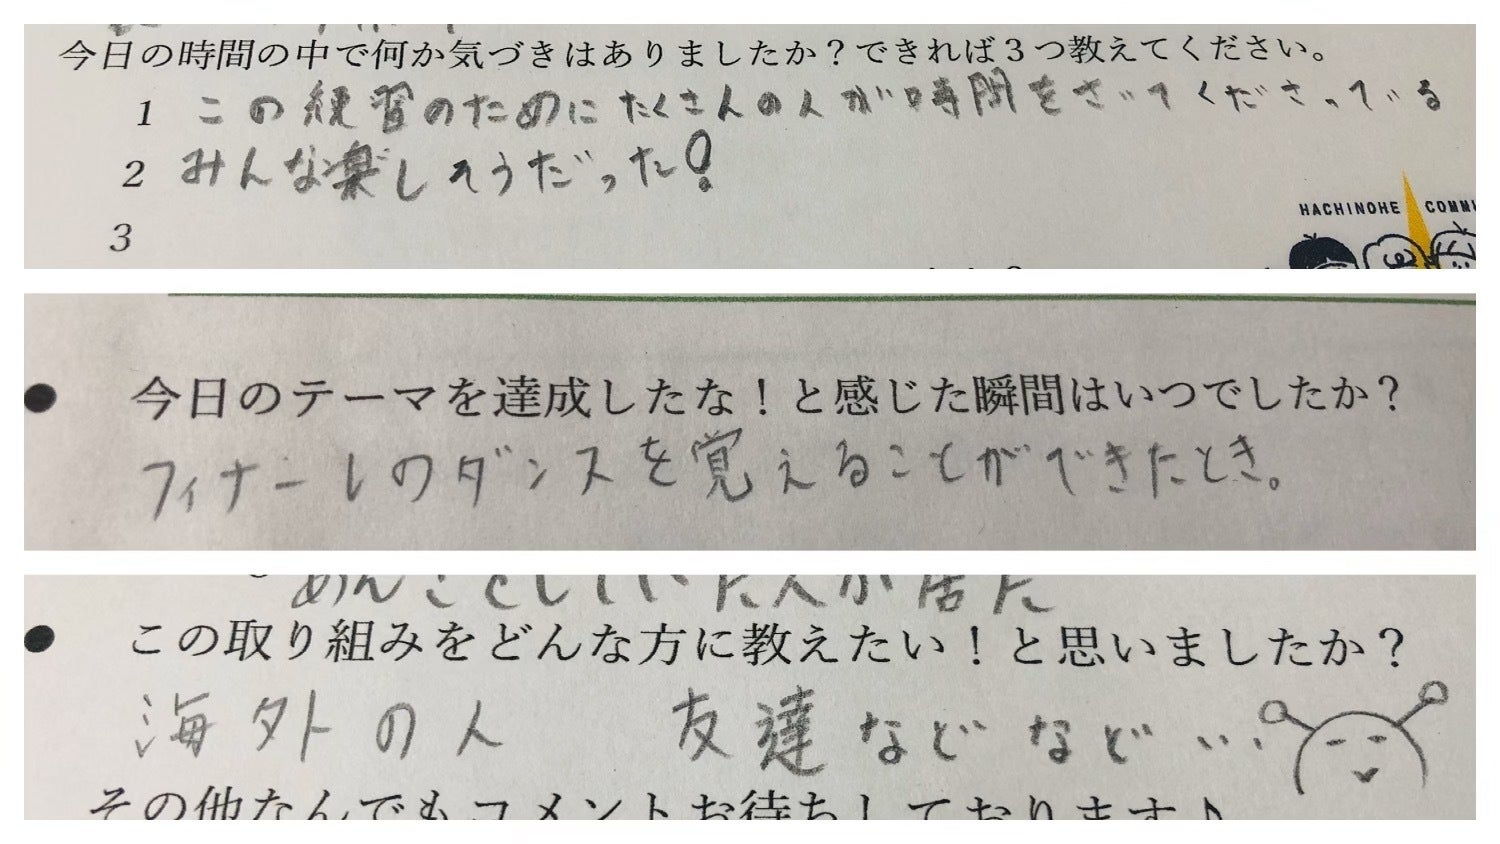 今日の時間の中で何か気づきはありましたか？できれば３つ教えてください。
1 この練習のためにたくさんの人が時間をさいてくださっている
2 みんな楽しそうだった!
3
HACHINOHE COMMU
今日のテーマを達成したな！と感じた瞬間はいつでしたか？
フィナーレのダンスを覚えることができたとき。
めんことしていた人が居た
この取り組みをどんな方に教えたい！と思いましたか？
海外の人 友達などなど…
その他なんでもコメントお待ちしております♪